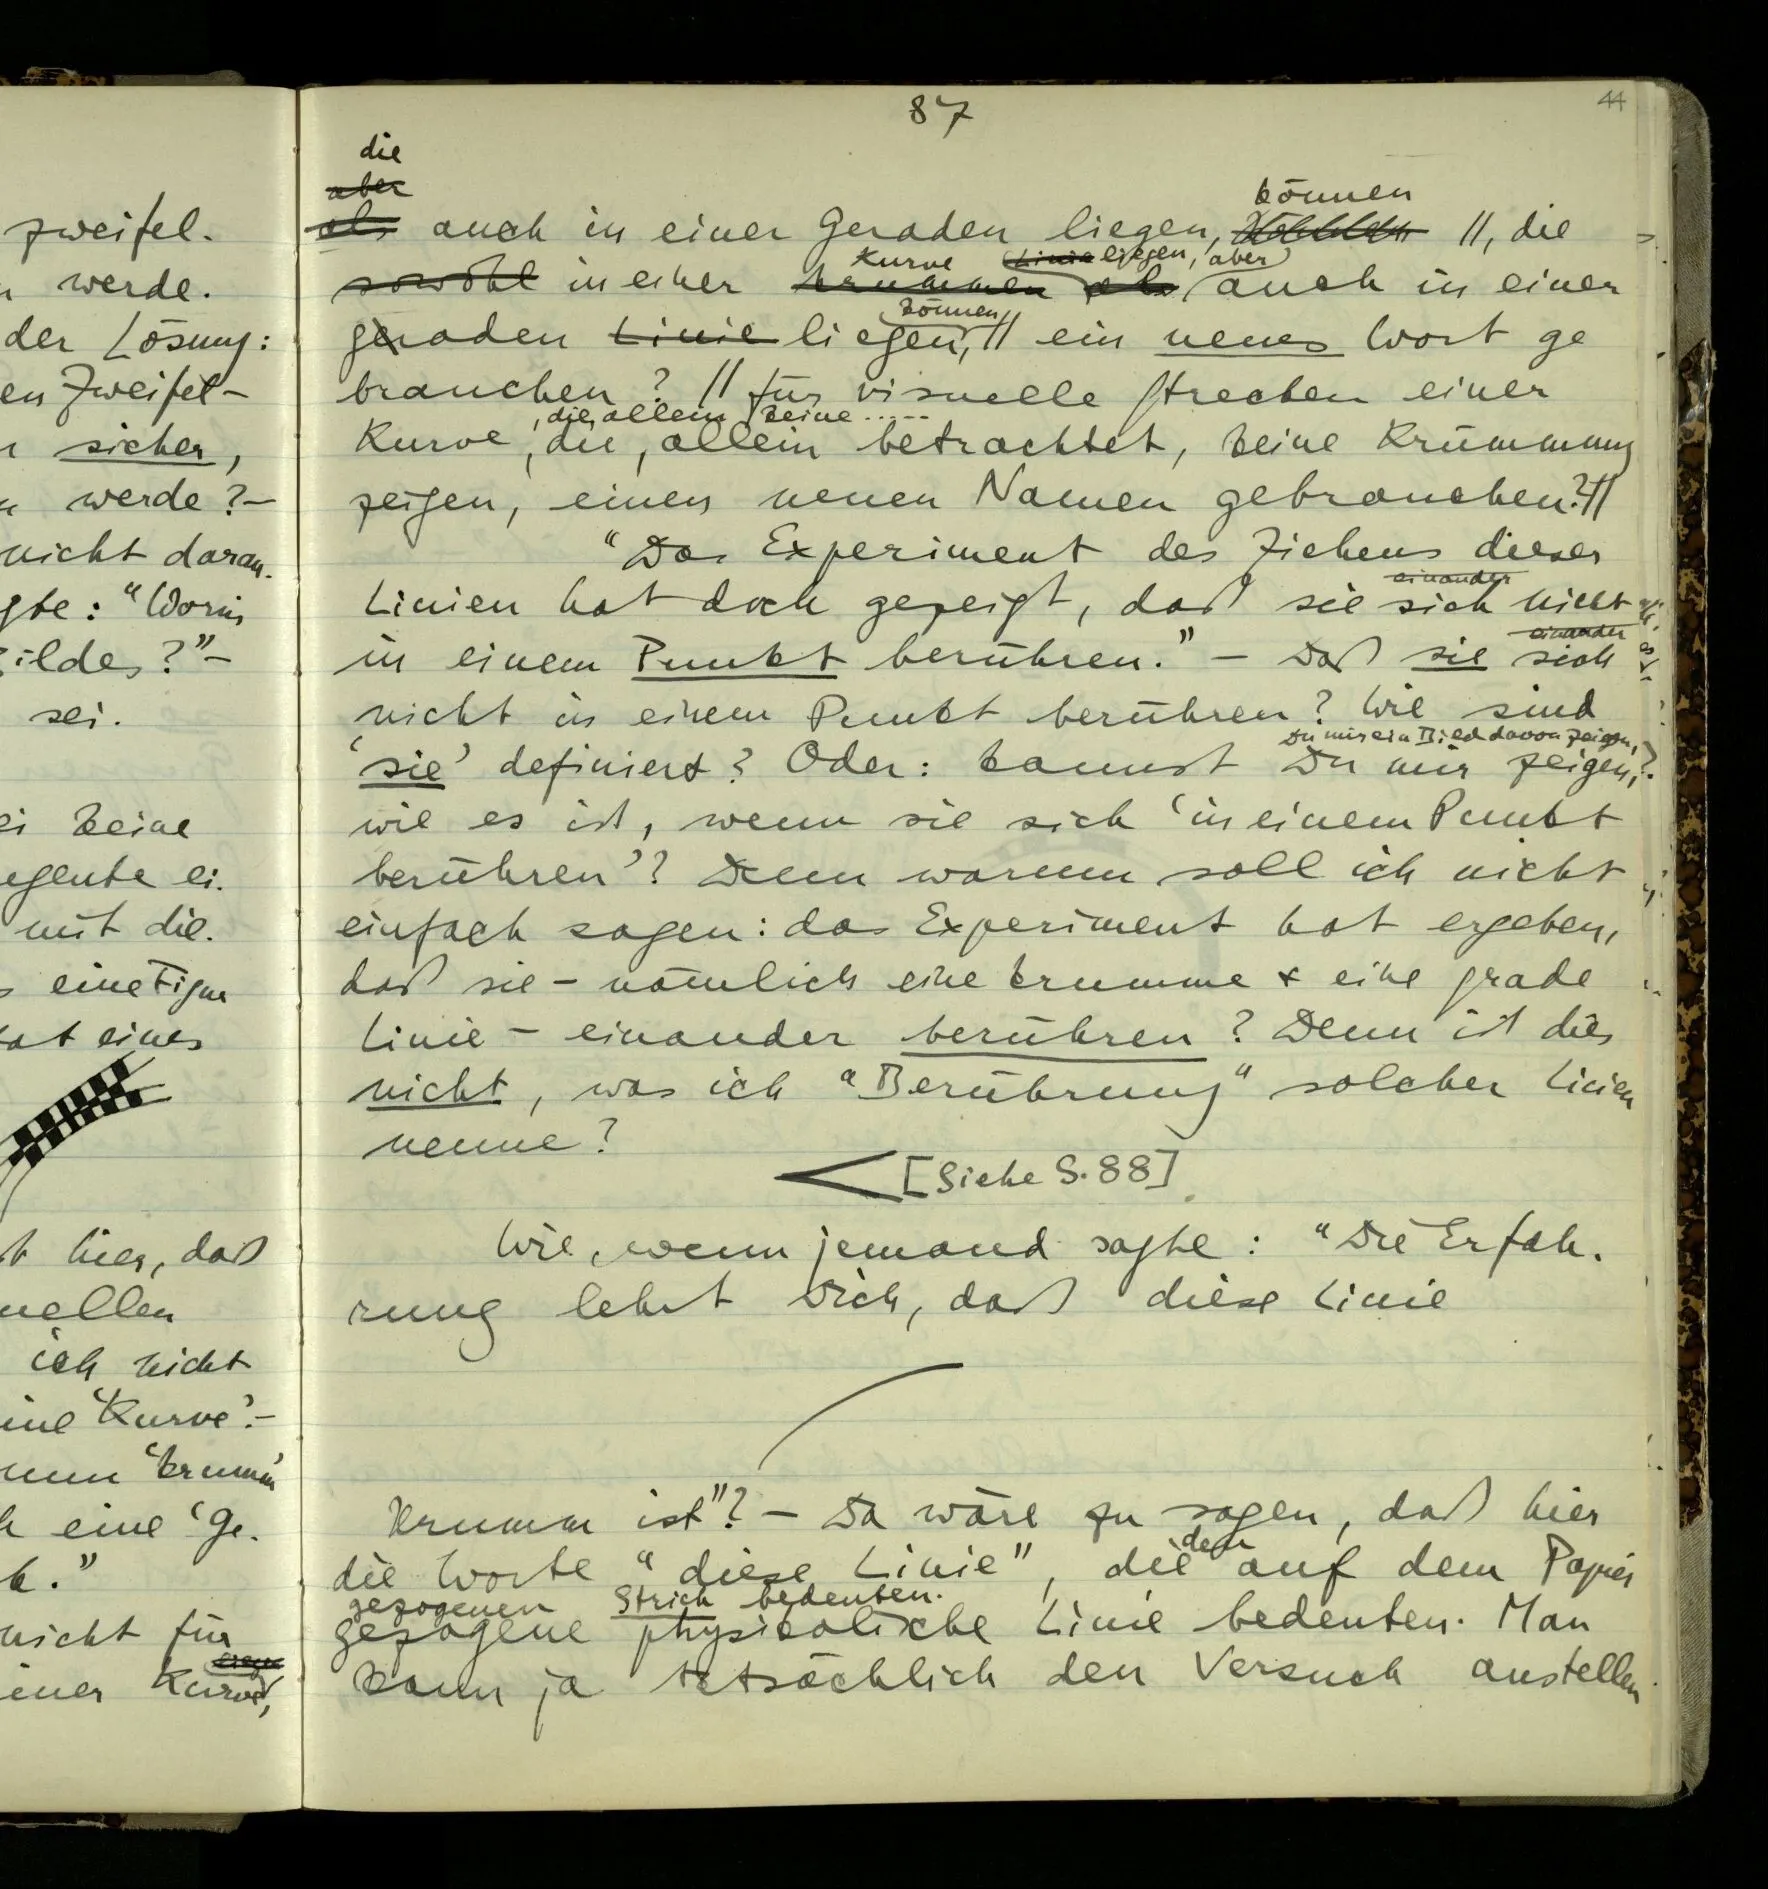 zweifel.
werde.
der Lösung:
en Zweifel-
sicher,
werde?—
nicht daran.
gte: "Worin
ildes?"—
sei.
ei keine
egente ei.
mit die.
eine Figur
at eines
hier, daß
uellen
ich nicht
ine 'Kurve'.—
nun 'krumm'
eine 'Ge.
."
nicht für
iner Kurve,
87
44
die
aber
als auch in einer Geraden liegen, können ||, die
sowohl in einer krummen Kurve Linie liegen, aber als auch in einer
geraden Linie liegen, können || ein neues Wort ge
brauchen? || für visuelle Strecken einer
, die, allein keine .....
Kurve, die, allein betrachtet, keine Krümmung
zeigen, einen neuen Namen gebrauchen? ||
"Das Experiment des Ziehens dieser
einander
Linien hat doch gezeigt, daß sie sich nicht
einander
in einem Punkt berühren." — Daß sie sich
nicht in einem Punkt berühren? Wie sind
Du mir ein Bild davon zeigen,
'sie' definiert? Oder: kannst Du mir zeigen,
wie es ist, wenn sie sich 'in einem Punkt
berühren'? Denn warum soll ich nicht
einfach sagen: das Experiment hat ergeben,
daß sie – nämlich eine krumme & eine grade
Linie – einander berühren? Denn ist dies
nicht, was ich "Berührung" solcher Linien
nenne?
[Siehe S. 88]
Wie, wenn jemand sagte: "Die Erfah.
rung lehrt Dich, daß diese Linie
krumm ist"? — Da wäre zu sagen, daß hier
den
die Worte "diese Linie", die auf dem Papier
gezogenen Strich bedeuten.
gezogene physikalische Linie bedeuten. Man
kann ja tatsächlich den Versuch anstellen